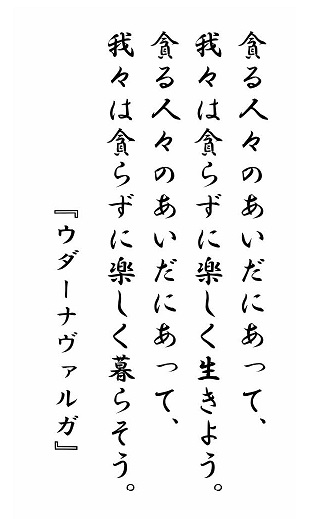 貪る人々のあいだにあって、
我々は貪らずに楽しく生きよう。
貪る人々のあいだにあって、
我々は貪らずに楽しく暮らそう。
『ウダーナヴァルガ』